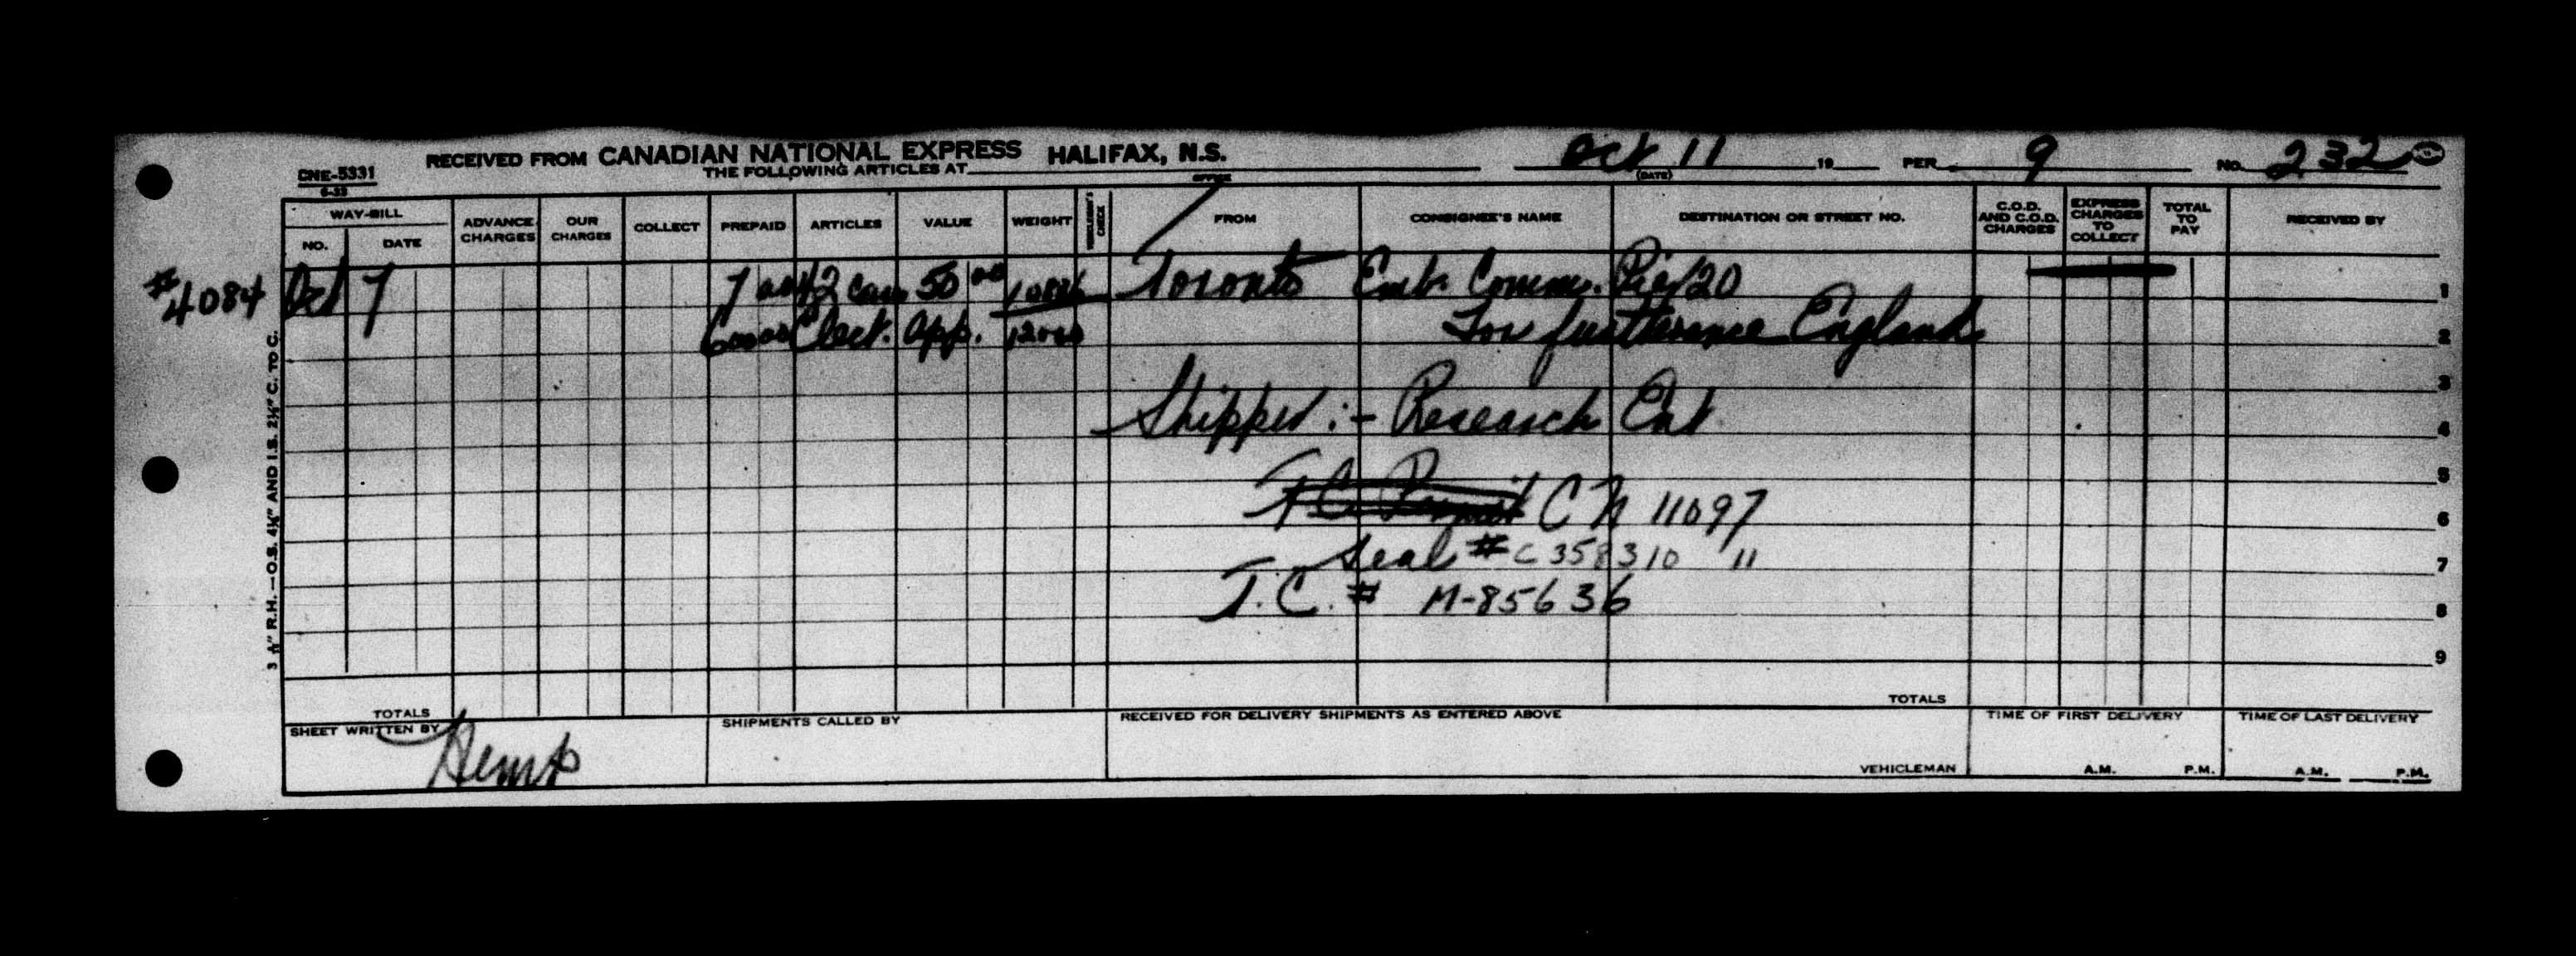 RECEIVED FROM CANADIAN NATIONAL EXPRESS HALIFAX, N.S. Oct 11 19 PER 9 NO. 232
CNE-5331
6-33
THE FOLLOWING ARTICLES AT OFFICE (DATE)
WAY-BILL
NO. DATE ADVANCE CHARGES OUR CHARGES COLLECT PREPAID ARTICLES VALUE WEIGHT VEHICLEMAN'S CHECK FROM CONSIGNEE'S NAME DESTINATION OR STREET NO. C.O.D. AND C.O.D. CHARGES EXPRESS CHARGES TO COLLECT TOTAL TO PAY RECEIVED BY
#4084 Oct 7 50 00 Toronto Emb. Comm. Pier 20 1
Elect. App. For furtherance England 2
3
Shipper :- Research Ent 4
5
C N 11097 6
Seal # C 358310 11 7
T.C. # M-85636 8
9
TOTALS TOTALS
SHEET WRITTEN BY SHIPMENTS CALLED BY RECEIVED FOR DELIVERY SHIPMENTS AS ENTERED ABOVE TIME OF FIRST DELIVERY TIME OF LAST DELIVERY
VEHICLEMAN A.M. P.M. A.M. P.M.